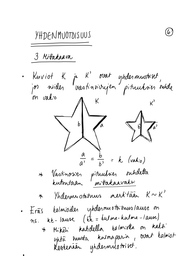 YHDENMUOTOISUUS
⑥
3 Mittakaava
• Kuviot K ja K' ovat yhdenmuotoiset,
jos niiden vastinosien pituuksien suhde
on vakio
K
K'
b
b'
a
a/a' = b/b' = k (vakio)
* Vastinosien pituuksien suhdetta
kutsutaan mittakaavaksi
* Yhdenmuotoisuus merkitään K ~ K'
• Eräs kolmioiden yhdenmuotoisuuslause on
ns. kk-lause (kk = kulma-kulma-lause)
* Mikäli kahdella kolmiolla on kaksi
yhtä suurta kulmaparia, ovat kolmiot
keskenään yhdenmuotoiset.